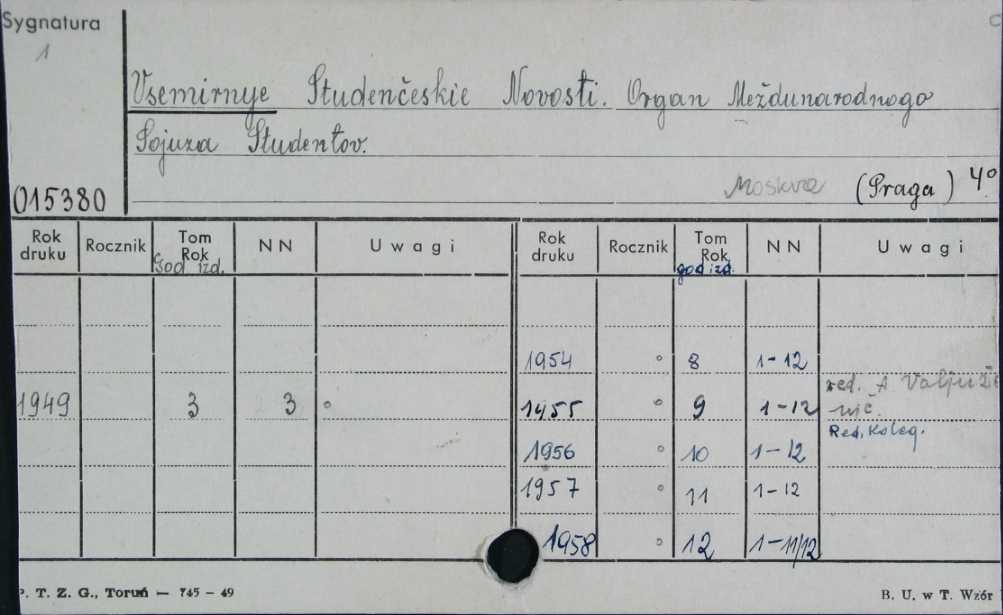 Sygnatura
1
Vsemirnye Studenčeskie Novosti. Organ Meždunarodnogo
Sojuza Studentov.
Moskva (Praga) 4º
015380
Rok druku Rocznik Tom Rok god izd. NN Uwagi Rok druku Rocznik Tom Rok god izd. NN Uwagi
1954 º 8 1-12
1949 3 3 º 1455 º 9 1-12 red. A
nič.
Red. Koleg.
1956 º 10 1-12
1957 º 11 1-12
1958 º 12 1-11/12
P. T. Z. G., Toruń — 745 - 49 B. U. w T. Wzór